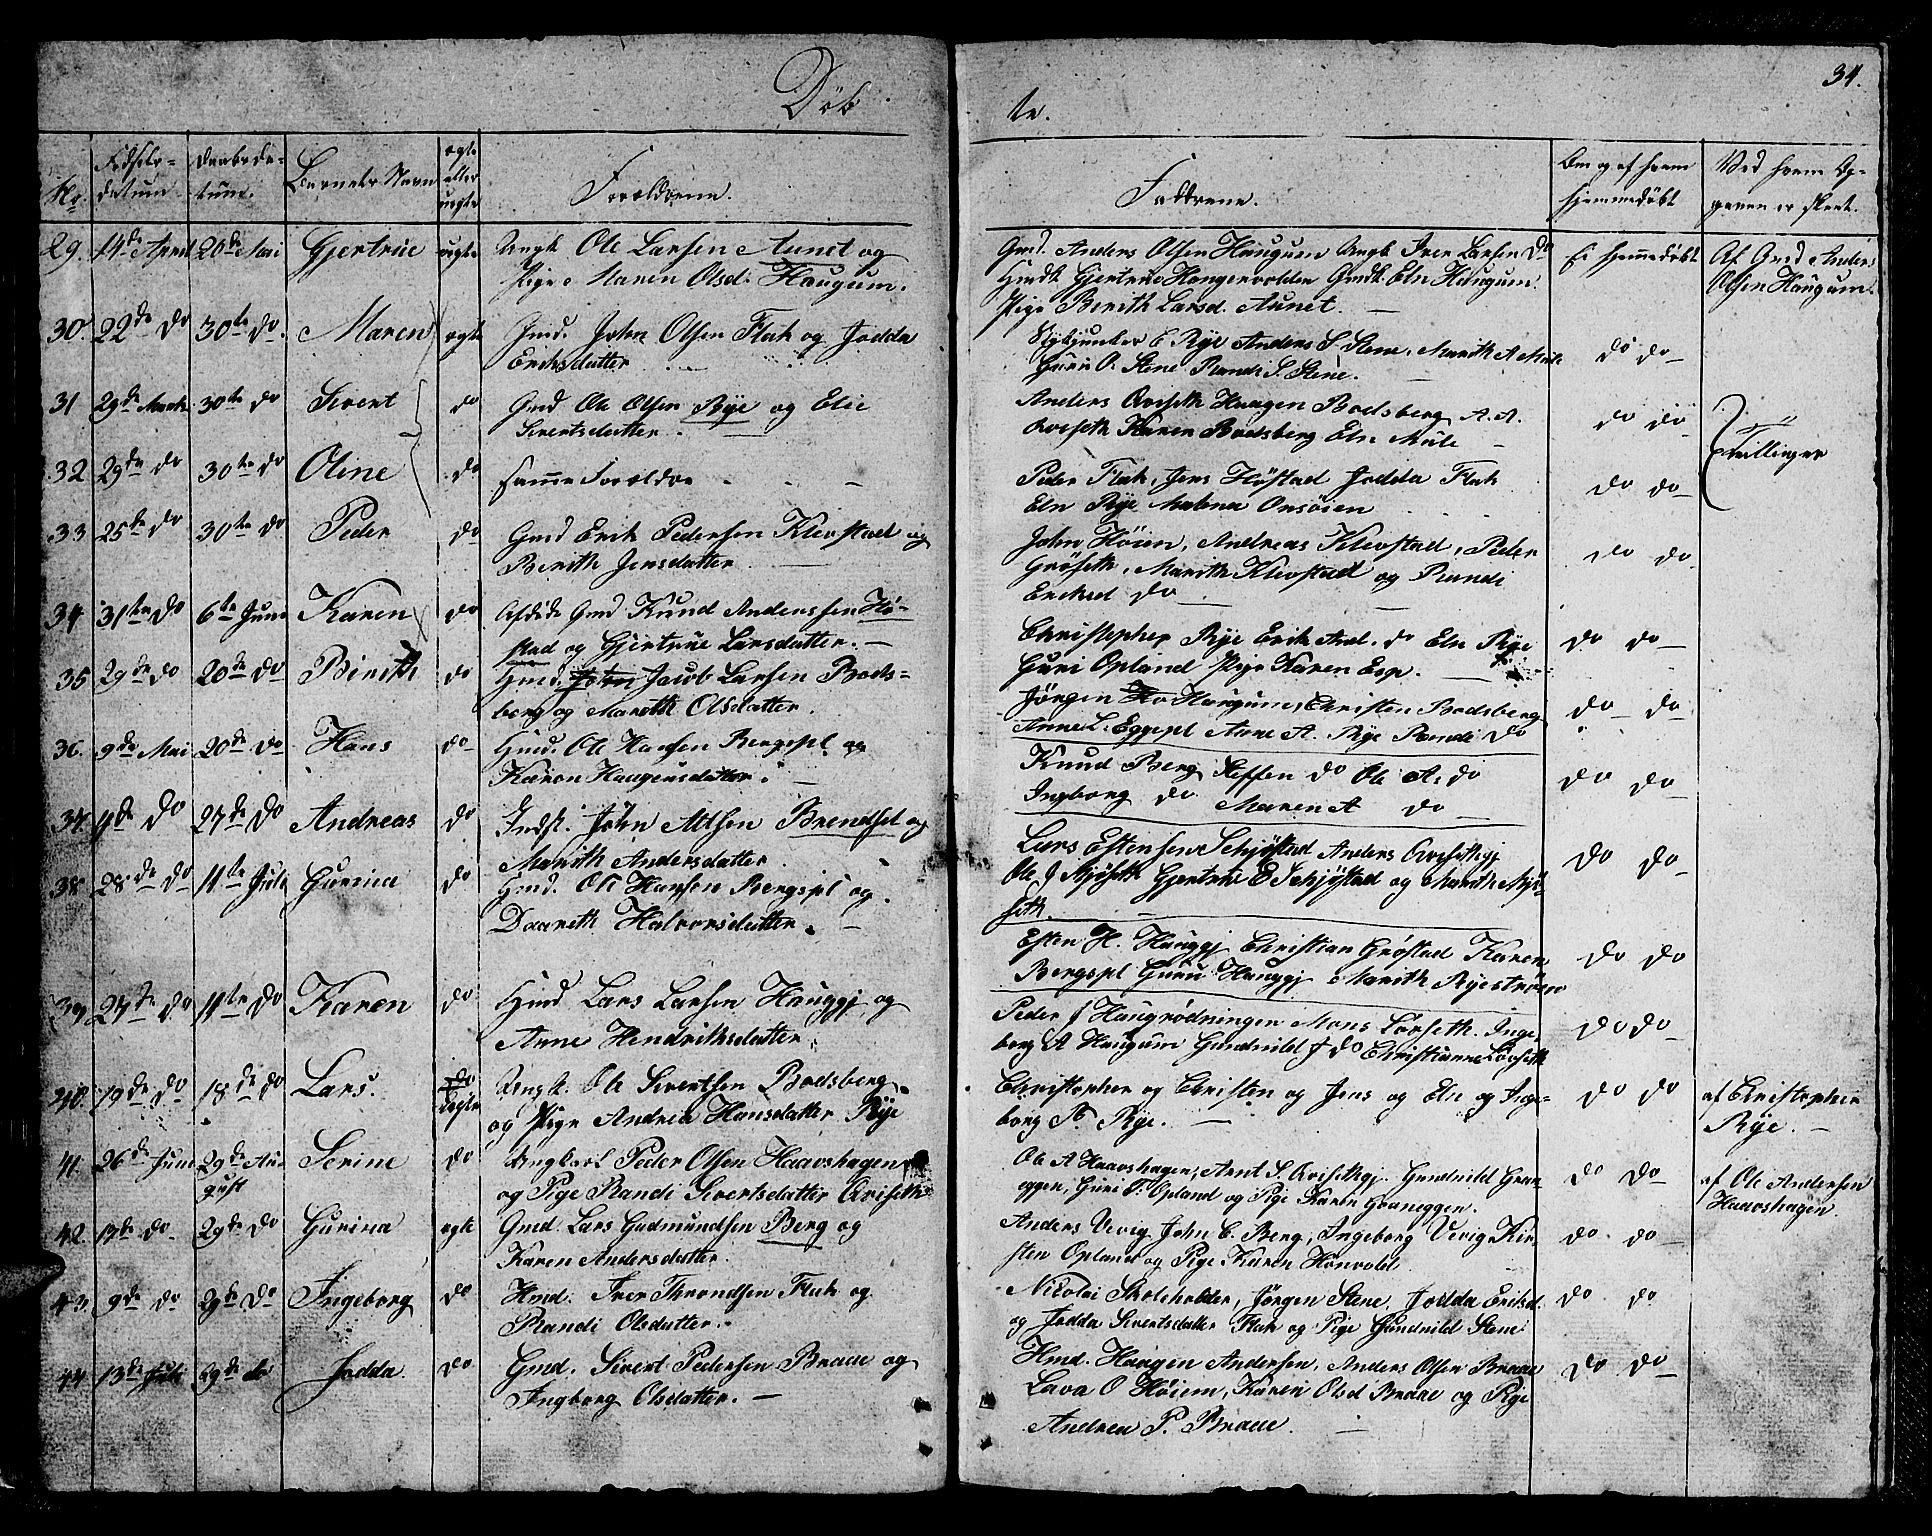 Döb
te.
34.
No.
Fødsels-
datum
Daabsda-
tum.
Barnets Navn
ægte
eller
uægte
Forældrene.
Faddrene.
Om og af hvem
hjemmedøbt
Ved hvem Op-
gaven er skeet.
29. 14de April 20de Mai Gjertrue uægte Ungk Ole Larsen Aunet og
Pige Maren Olsd. Haugum.
Gmd. Anders Olsen Haugum Ungk Iver Larsen Do
Gjertrue Haugervolden Gmdk. Eln Haugum.
Pige Berith Larsd. Aunet.
Ei hjemmedøbt
Af Gmd Anders
Olsen Haugum.
30. 22de do 30te do. Maren ægte Gmd. John Olsen Flak og Jodda
Eriksdatter
E Rye Anders S Stene, Marith A Mule
Guru O. Stene Randi S. Stene.
do do
31 29de Marts 30te do Sivert do Gmd Ole Olsen Rye og Elie
Sivertsdatter.
Anders Qviseth Haagen Bodsberg A. A.
Qviseth Karen Bodsberg Eln Mule
do do
Tvillinger
32 29de do 30te do Oline do samme Forældre
Peder Flak, Jens Høstad Jodda Flak
Eln Rye Malena Onsøien
do do
33 25de do 30te do Peder do Gmd Erik Pedersen Klevstad og
Berith Jensdatter
John Høien, Andreas Klevstad, Peder
Grøseth, Marith Klevstad og Randi
Eriksd do
do do
34 31te do 6te Juni Karen do Afdøde Gmd Knud Anderssen Hø-
stad og Gjertrue Larsdatter.
Christopher Rye Erik And. do Eln Rye
Guri Opland Pige Karen Esp.
do do
35 29de do 20de do Berith do Hmd. John Jacob Larsen Bods-
berg og Marith Olsdatter.
Jørgen Ho Haugum, Christen Bodsberg
Anne L. Eggepl Anne A. Rye Randi do
do do
36. 9de Mai 20de do Hans do Hmd. Ole Hansen Bergspl og
Karen Haagensdatter.
Knud Berg Steffen do Ole A. do
Ingborg do Maren A do
do do
37. 4de do 27de do Andreas do Indst. John Alssen Brendsel og
Marith Andersdatter
Lars Estensen Schjøstad Anders Qvisethgj
Ole J Mjøseth Gjertrue E Schjøstad og Marith Mjø-
seth.
do do
38. 28de do 11te Juli Gurina do Hmd. Ole Hansen Bergspl og
Daareth Halvorsdatter.
Esten H. Hauggj Christian Grøstad Karen
Bergspl Guru Hauggj Marith Ryestrøen
do do
39 27de do 11te do Karen do Hmd Lars Larsen Hauggj og
Anne Hendriksdatter
Peder J Haugrødningen Mons Lørseth. Inge-
borg A Haugum Gundnild J do Christianne Lørseth
do do
40. 19de do 18de do Lars. do uægte Ungk. Ole Sivertsen Bodsberg
og Pige Andrea Hansdatter Rye
Christopher og Christen og Jens og Eln og Inge-
borg P. Rye.
do do
af Christopher
Rye.
41. 26de Juni 29de Au-
gust Serine do Ungkarl Peder Olsen Haavshagen
og Pige Randi Sivertsdatter Qviseth
Ole A Haavshagen, Arnt S. Qvisethgj. Gundnild Gran-
eggen, Guri T. Opland og Pige Karen Graneggen.
do do
af Ole Andersen
Haavshagen.
42. 13de do 29de do Gurina ægte Gmd. Lars Gudmundsen Berg og
Karen Andersdatter
Anders Vevig John C. Berg, Ingeborg Vevig Kir-
sten Opland og Pige Karen Hønvold.
do do
43. 9de do 29de do Ingeborg do Hmd. Iver Throndsen Flak og
Randi Olsdatter.
Nicolai Skoleholder, Jørgen Stene, Jodda Eriksd.
og Jodda Sivertsdatter Flak og Pige Gundnild Stene.
do do
44 13de Juli 29de do Jodda. do Gmd. Sivert Pedersen Braae og
Ingborg Olsdatter.
Hmd. Haagen Andersen, Anders Olsen Braae
Lava O Høiem, Karen Olsd Braae og Pige
Andrea P. Braae.
do do